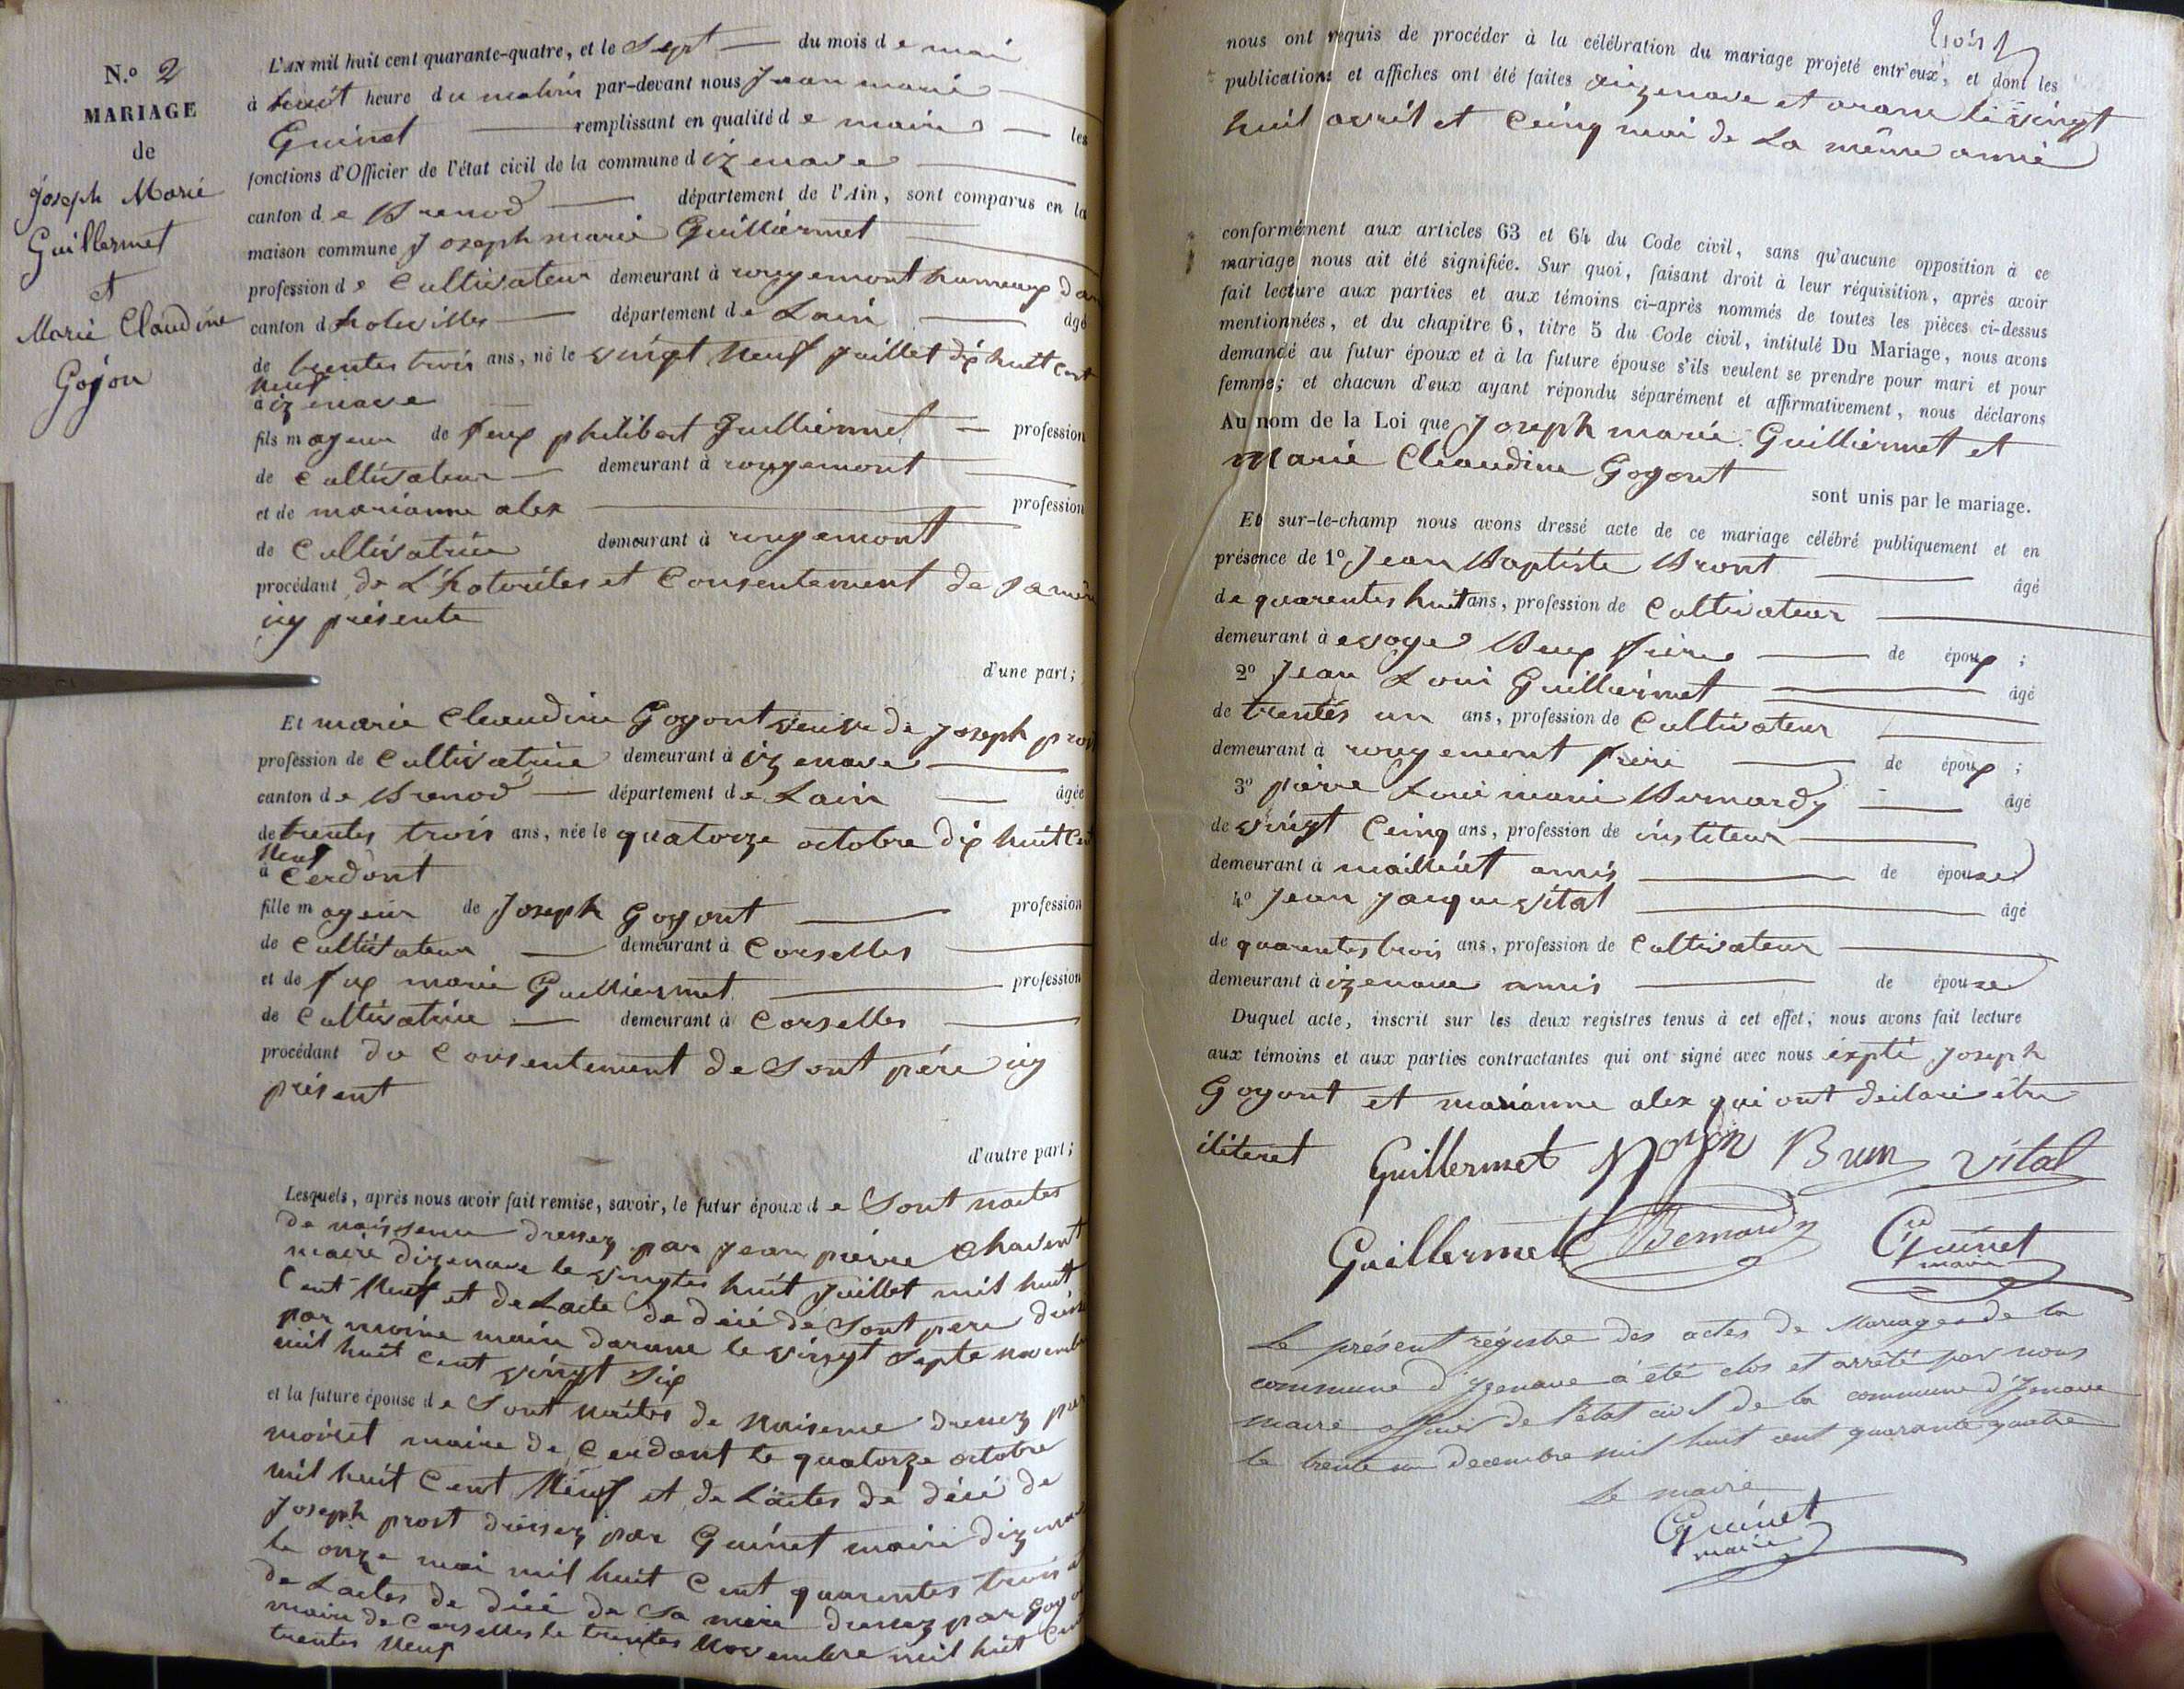 N.º 2
MARIAGE
de
Joseph Marie
Guillermet
et
Marie Claudine
Gojon
L'AN mil huit cent quarante-quatre, et le Sept du mois de mai
à huit heure du matin par-devant nous Jean marie
Guinet remplissant en qualité de maire les
fonctions d'Officier de l'état civil de la commune d izenave
canton de Brenod département de l'Ain, sont comparus en la
maison commune Joseph marie Guilliermet
profession de Cultivateur demeurant à rougemont hameaux
canton d département de Lain âgé
de trentes trois ans, né le vingt Neuf juillet dix huit cent
Neuf
à izenave
fils mageur de feux philibert Guilliermet profession
de Cultivateur demeurant à rougemont
et de marianne alex profession
de Cultivatrice demeurant à rougemont
procédant de L'hotorites et Consentement de sa
icy présente
d'une part;
Et marie Claudine Gogont veuve de Joseph
profession de Cultivatrice demeurant à izenave
canton de Brenod département de Lain âgée
de trentes trois ans, née le quatorze octobre dix huit Cent
Neuf
à Cerdont
fille mageur de Joseph Gogont profession
de Cultivateur demeurant à Corselles
et de fux marie Guilliermet profession
de Cultivatrice demeurant à Corselles
procédant du Consentement de Sont père icy
présent
d'autre part;
Lesquels, après nous avoir fait remise, savoir, le futur époux de Sont nactes
de naissence dressez par jean pierre Chavent
maire dizenave le vingtes huit juillet mil huit
Cent Neuf et de Lacte de décé de Sont pere
par moine maire darane le vingt Septe
mil huit Cent vingt Six
et la future épouse de Sont nactes de Naisence dressez
moiret maire de Cerdont le quatorze octobre
mil huit Cent Neuf et de Lactes de décé de
Joseph prost dressez par Guinet maire
le onze mai mil huit Cent quarentes trois
de Lactes de décé de Sa mere dressez par
maire de Corselles le trentes Novembre mil huit
trentes Neuf
nous ont requis de procéder à la célébration du mariage projeté entr'eux, et dont les
publications et affiches ont été faites aizenave et arane le vingt
huit avril et Cinq mai de La même année
conformément aux articles 63 et 64 du Code civil, sans qu'aucune opposition à ce
mariage nous ait été signifiée. Sur quoi, faisant droit à leur réquisition, après avoir
fait lecture aux parties et aux témoins ci-après nommés de toutes les pièces ci-dessus
mentionnées, et du chapitre 6, titre 5 du Code civil, intitulé Du Mariage, nous avons
demandé au futur époux et à la future épouse s'ils veulent se prendre pour mari et pour
femme; et chacun d'eux ayant répondu séparément et affirmativement, nous déclarons
Au nom de la Loi que Joseph marie Guilliermet et
Marie Claudine Gogont
sont unis par le mariage.
Et sur-le-champ nous avons dressé acte de ce mariage célébré publiquement et en
présence de 1º Jean Baptiste Bront âgé
de quarentes huit ans, profession de Cultivateur
demeurant à Beux frere de époux;
2º Jean Loui Guilliermet âgé
de trentes un ans, profession de Cultivateur
demeurant à rougemont frere de époux;
3º pierre Loui marie Bernardy âgé
de vingt Cinq ans, profession de institeur
demeurant à mailliet amis de épouse
4º Jean jacque vital âgé
de quarentes trois ans, profession de Cultivateur
demeurant à izenave amis de épouse
Duquel acte, inscrit sur les deux registres tenus à cet effet, nous avons fait lecture
aux témoins et aux parties contractantes qui ont signé avec nous éxpté Joseph
Gogont et marianne alex qui ont declaré être
iliteret Guillermet Brun vital
Guillermet Bernardy Guinet
maire
Le présent régistre des actes de Mariages de la
commune d'Izenave à été clos et arrêté par nous
maire officier de l'état civil de la commune d'Izenave
le trente un decembre mil huit cent quarante quatre
Le maire
Guinet
maire